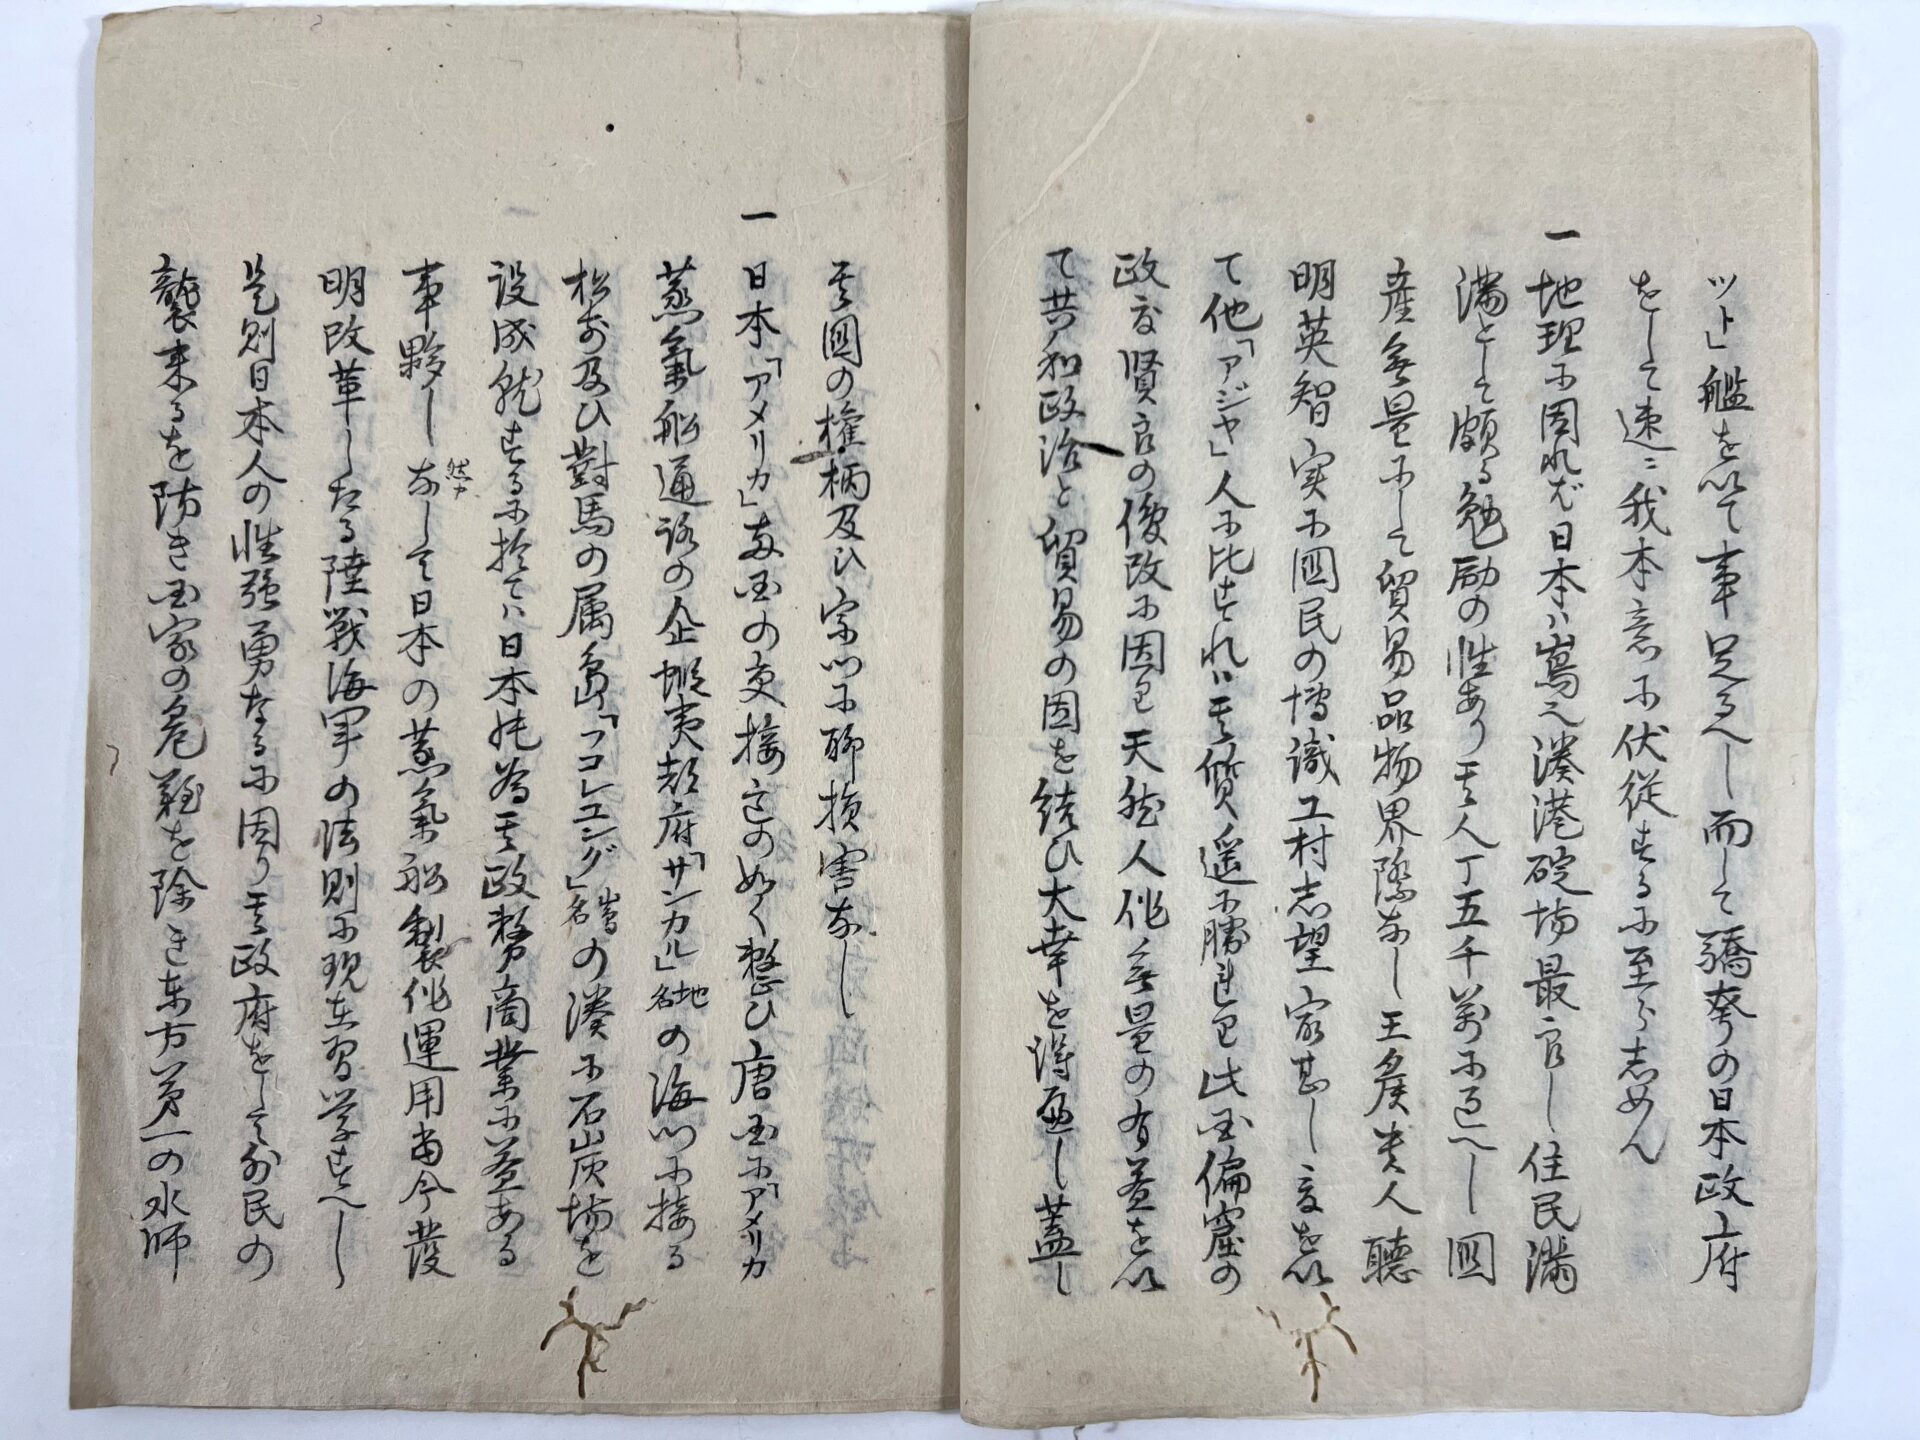 ツト」艦を以て事足るへし而して驕奢の日本政府
をして速ニ我本意に伏従するに至らしめん
一地理に因れば日本ハ嶌之湊港碇場最良し住民満
満として頗る勉励の性あり其人丁五千万に近へし国
産無量にして貿易品物界際なし王侯貴人聴
明英智実に国民の博識工村志望家甚し之を以
て他「アジヤ」人に比すれハ其質遥に勝れり此国偏窟の
政を賢良の俊改に因り天然人作無量の有益を以
て共ノ和政治と貿易の因を結ひ大幸を得へし蓋し
其国の権柄及ひ宗門に聊損害なし
一日本「アメリカ」両国の交接これの如く整ひ唐国に「アメリカ
蒸気船通路の企蝦夷都府「サンカル」地名の海門に接る
松前及ひ對馬の属島「コレユング」嶌名の湊に石山灰場を
設成就するに於てハ日本此為其政務商業に益ある
事夥しなし然カして日本の蒸氣船製作運用当今発
明改革したる陸戦海軍の法則に現在習学すへし
是則日本人の性強勇なるに因り其政府をして外民の
襲来るを防き国家の危難を除き東方第一の水師